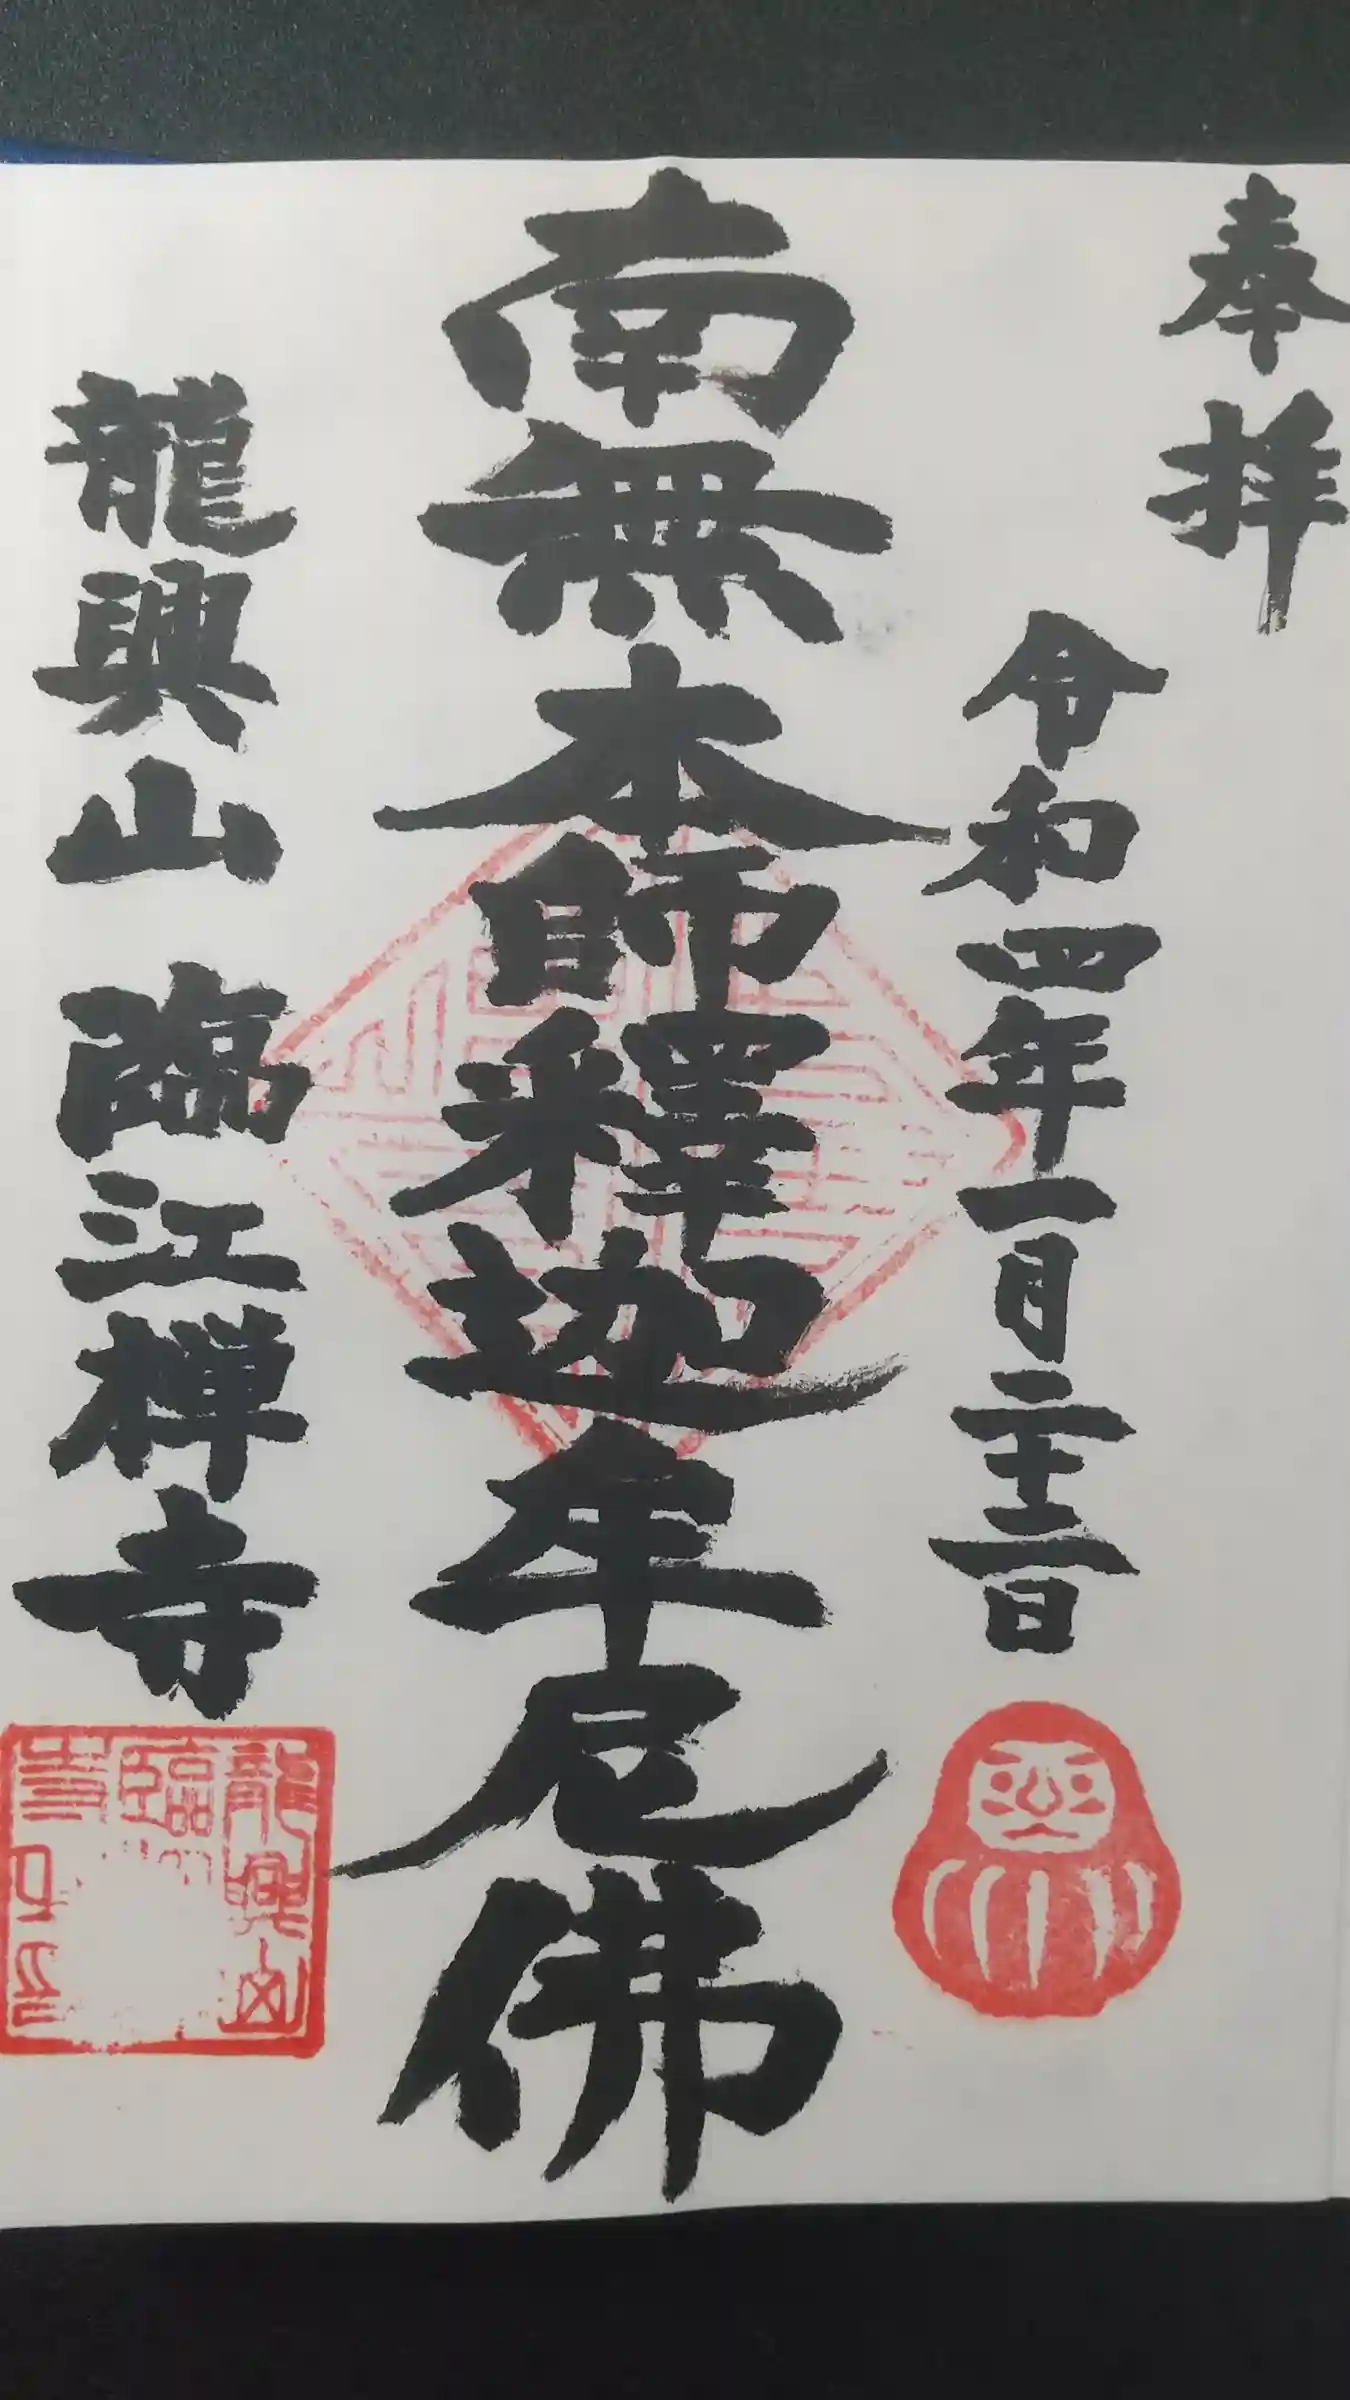 奉拝
令和四年一月二十二日
南無本師釋迦牟尼佛
龍興山 臨江禅寺
龍興山
臨
寺